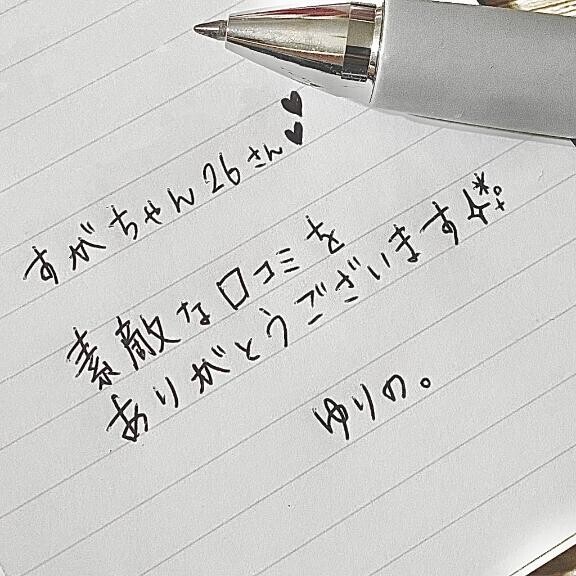 すがちゃん26さん♥♥
素敵な口コミを
ありがとうございます
ゆりの。